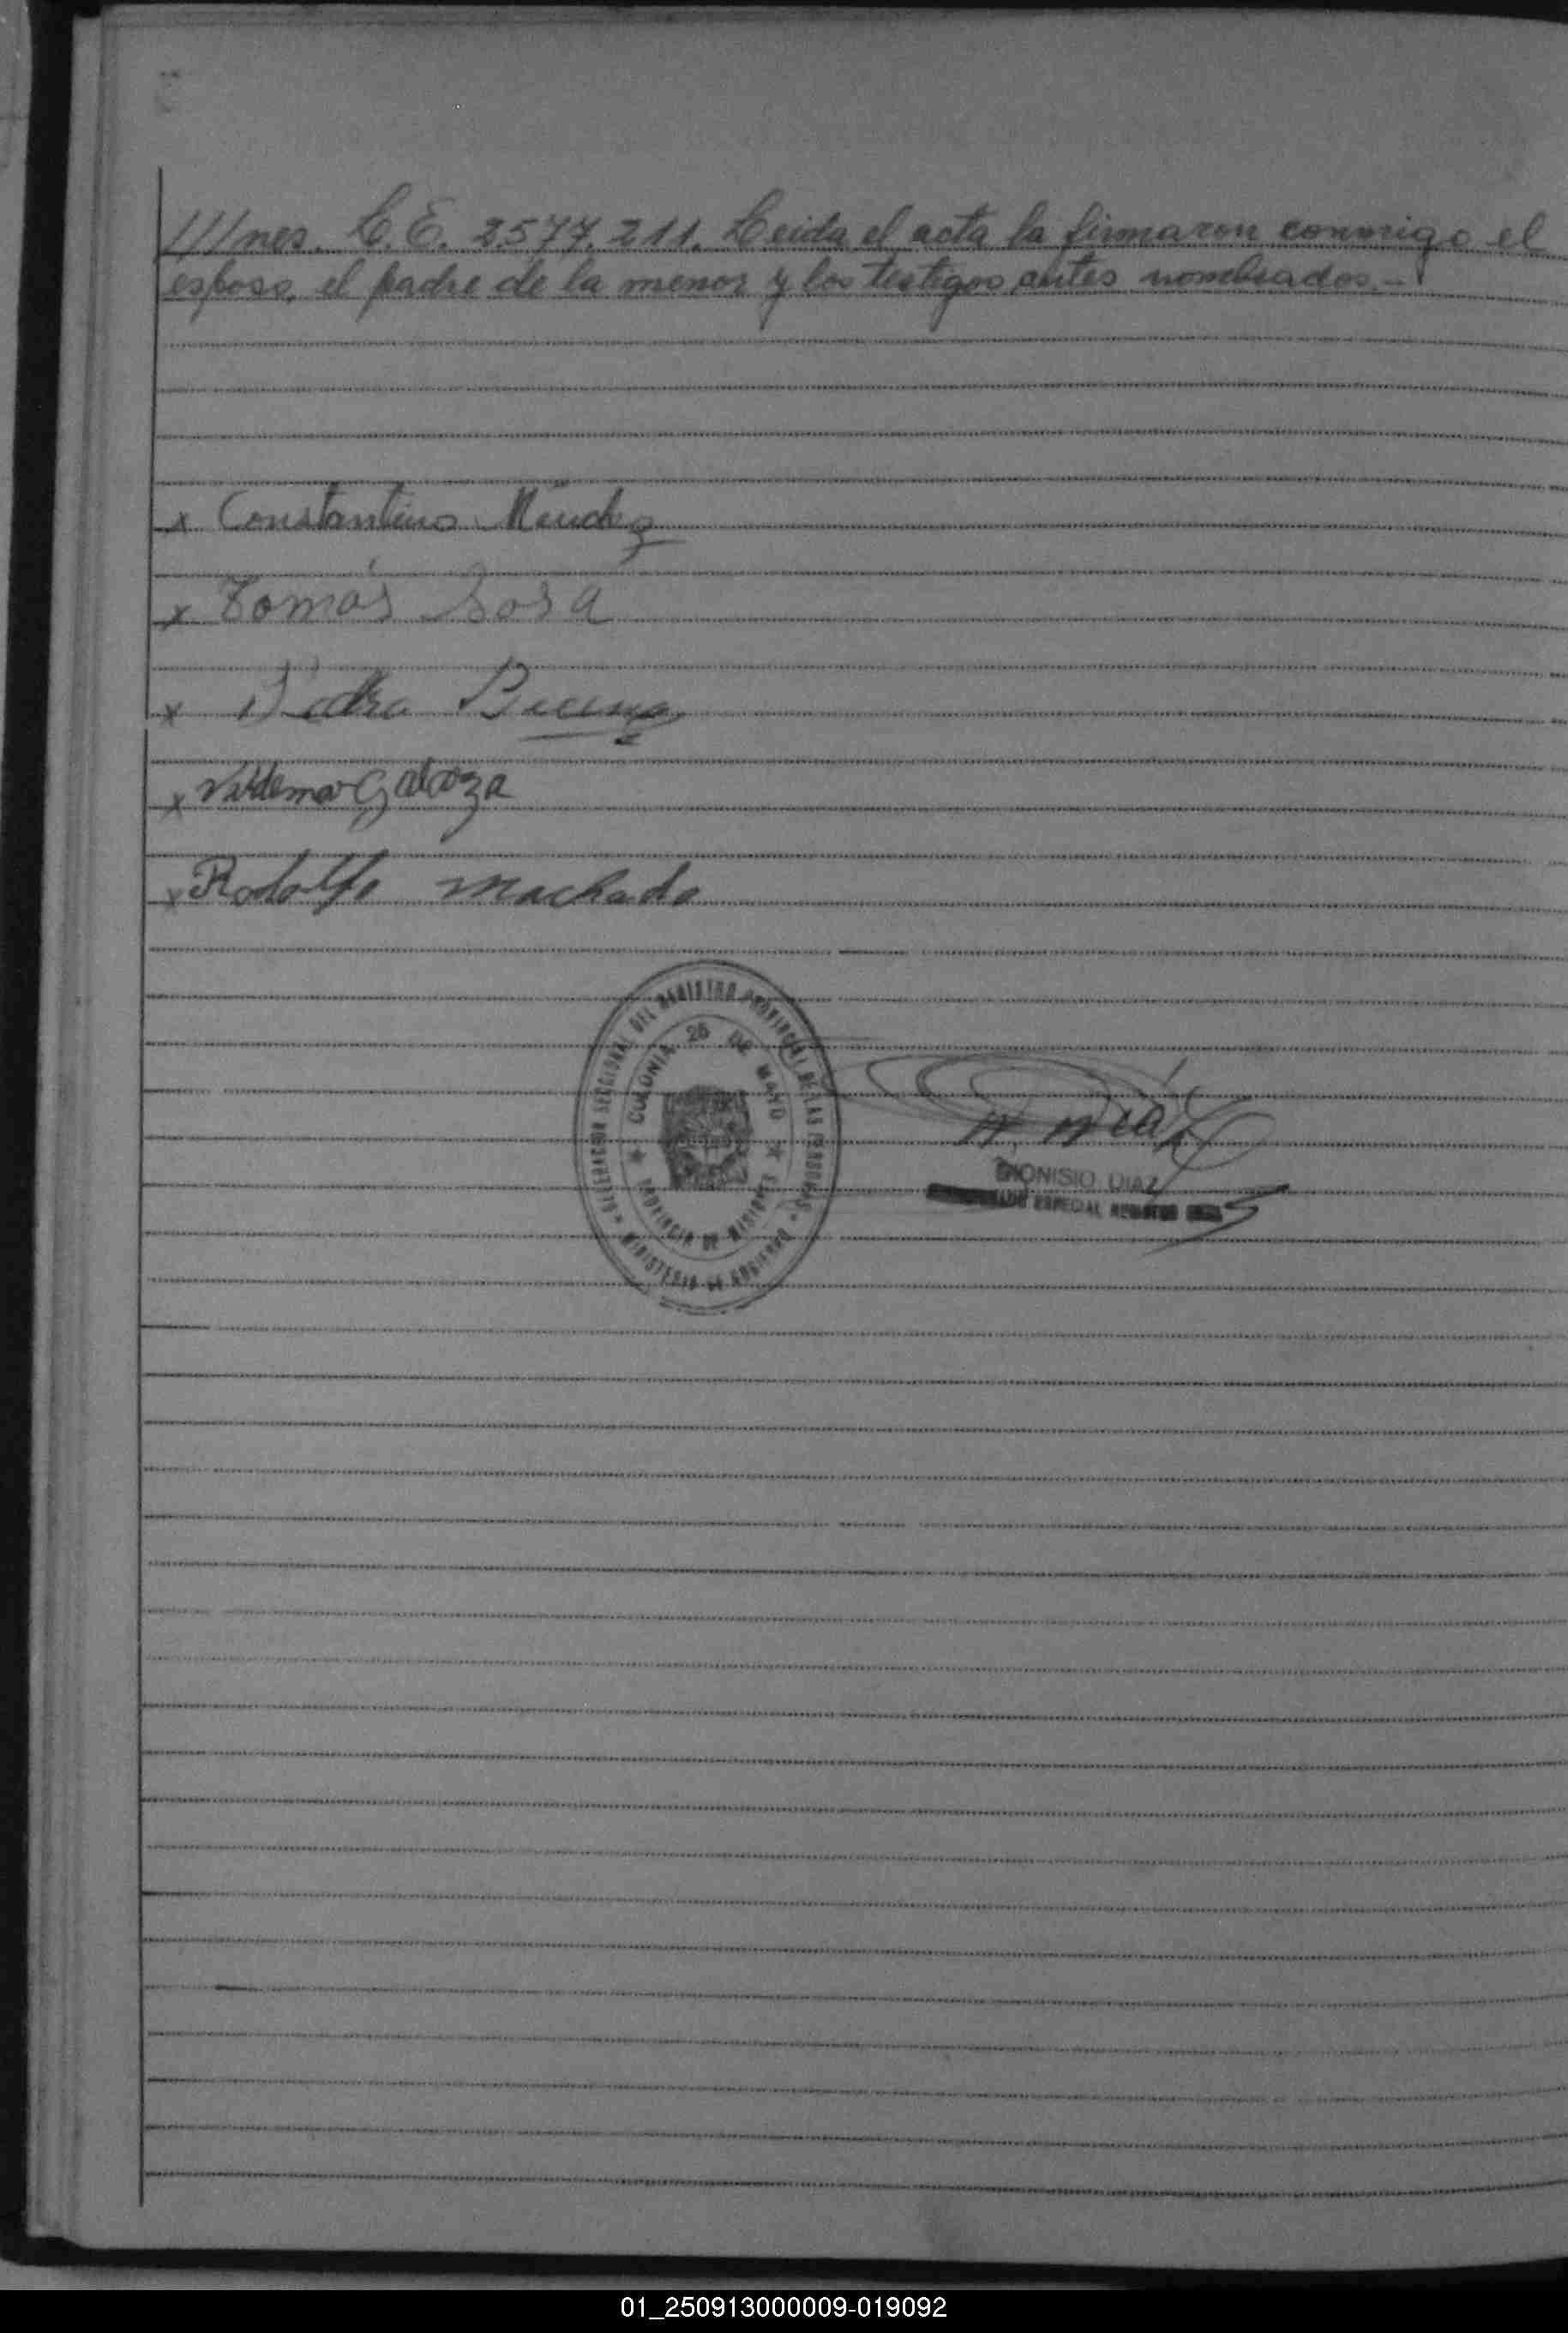 ///nes. L.E. 2.577.211. Leida el acta la firmaron conmigo el
esposo, el padre de la menor y los testigos antes nombrados.-
x Constantino Méndez
x Tomás Sosa
x Pedro
x Valdemar
x Rodolfo Machado
DELEGACION SECCIONAL DEL REGISTRO PROVINCIAL DE LAS PERSONAS
COLONIA 25 DE MAYO
PROVINCIA DE MISIONES
MINISTERIO DE GOBIERNO
D. Díaz
DIONISIO DIAZ
ESPECIAL
01_250913000009-019092